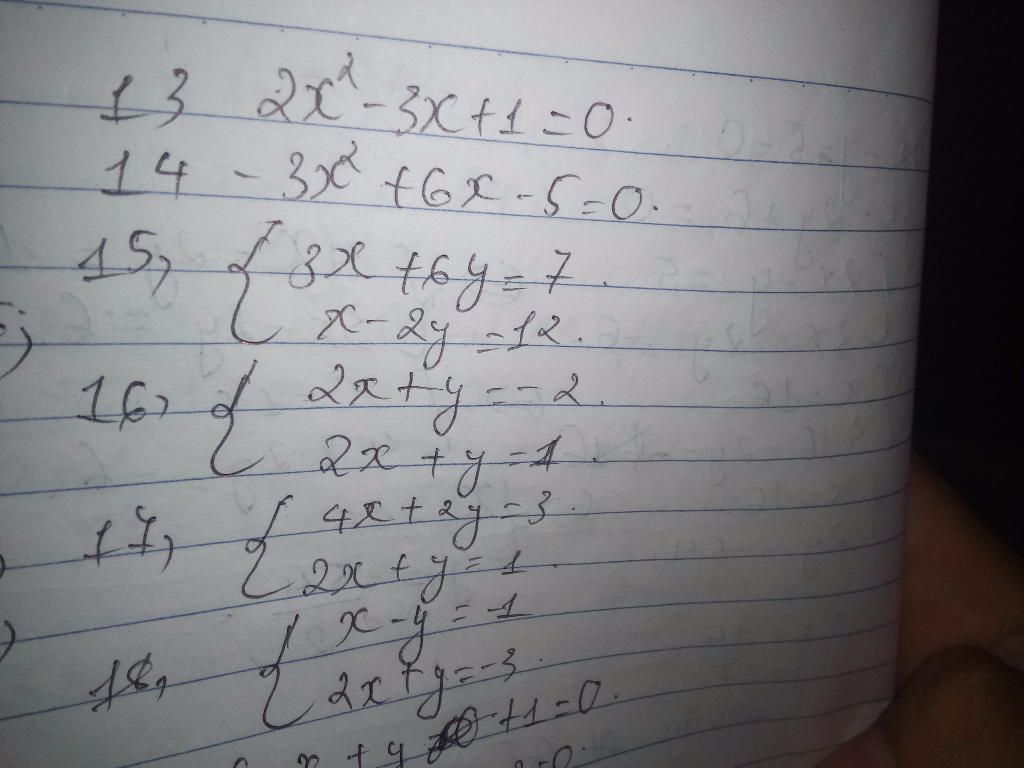 13 2x² - 3x + 1 = 0.
14 - 3x² + 6x - 5 = 0.
15, { 3x + 6y = 7.
x - 2y = 12.
16, { 2x + y = - 2.
2x + y = 1.
17, { 4x + 2y = 3.
2x + y = 1.
18, { x - y = -1
2x + y = -3.
x + y + 1 = 0.
= 0.